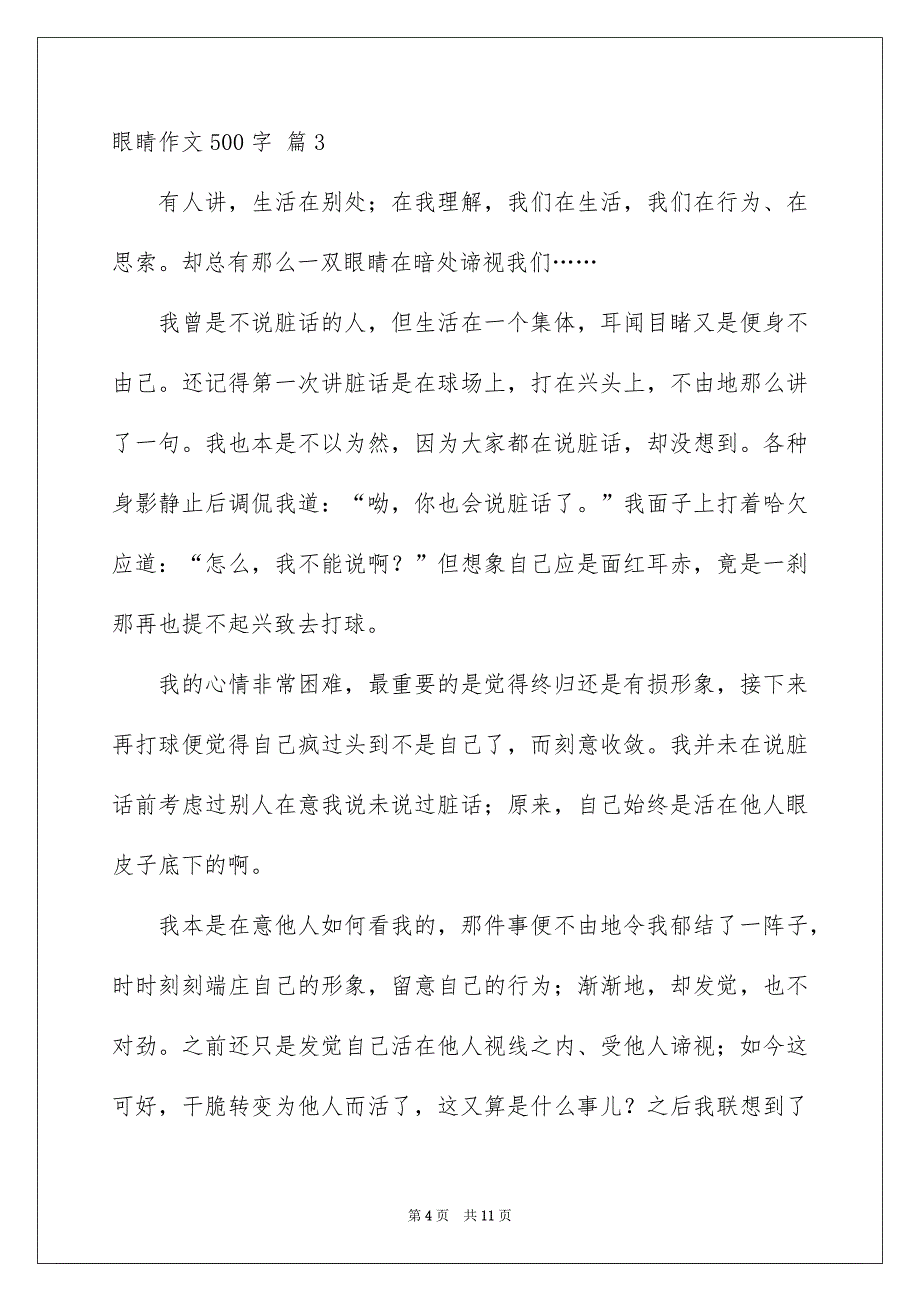 眼睛作文500字 篇3
有人讲，生活在别处；在我理解，我们在生活，我们在行为、在
思索。却总有那么一双眼睛在暗处谛视我们……
我曾是不说脏话的人，但生活在一个集体，耳闻目睹又是便身不
由己。还记得第一次讲脏话是在球场上，打在兴头上，不由地那么讲
了一句。我也本是不以为然，因为大家都在说脏话，却没想到。各种
身影静止后调侃我道：“呦，你也会说脏话了。”我面子上打着哈欠
应道：“怎么，我不能说啊？”但想象自己应是面红耳赤，竟是一刹
那再也提不起兴致去打球。
我的心情非常困难，最重要的是觉得终归还是有损形象，接下来
再打球便觉得自己疯过头到不是自己了，而刻意收敛。我并未在说脏
话前考虑过别人在意我说未说过脏话；原来，自己始终是活在他人眼
皮子底下的啊。
我本是在意他人如何看我的，那件事便不由地令我郁结了一阵子，
时时刻刻端庄自己的形象，留意自己的行为；渐渐地，却发觉，也不
对劲。之前还只是发觉自己活在他人视线之内、受他人谛视；如今这
可好，干脆转变为他人而活了，这又算是什么事儿？之后我联想到了
第4页 共11页